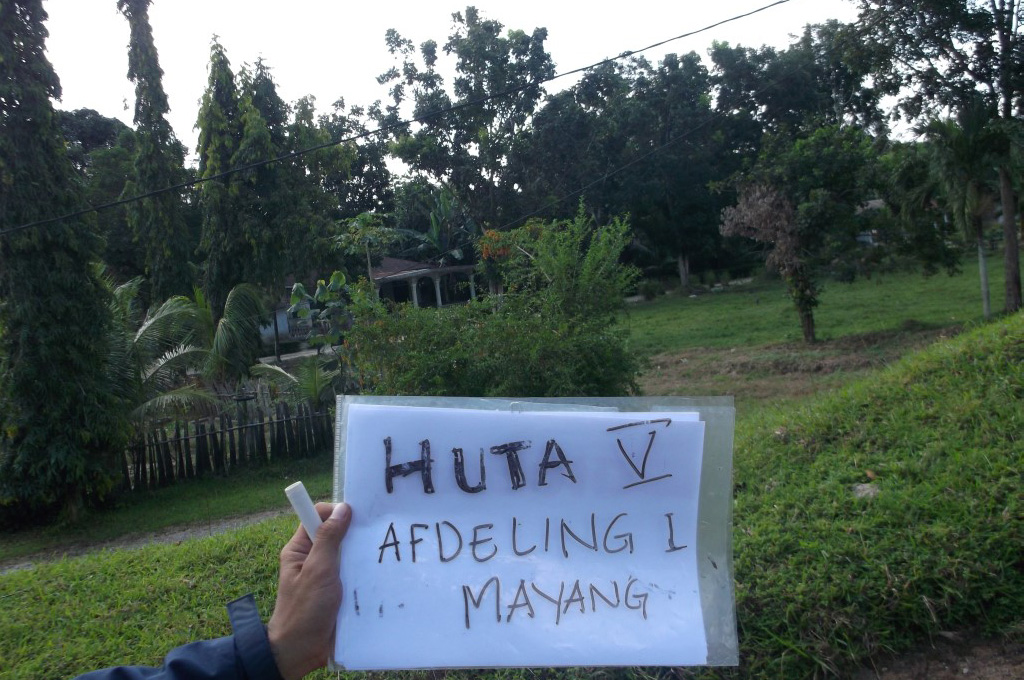 HUTA V
AFDELING I
MAYANG